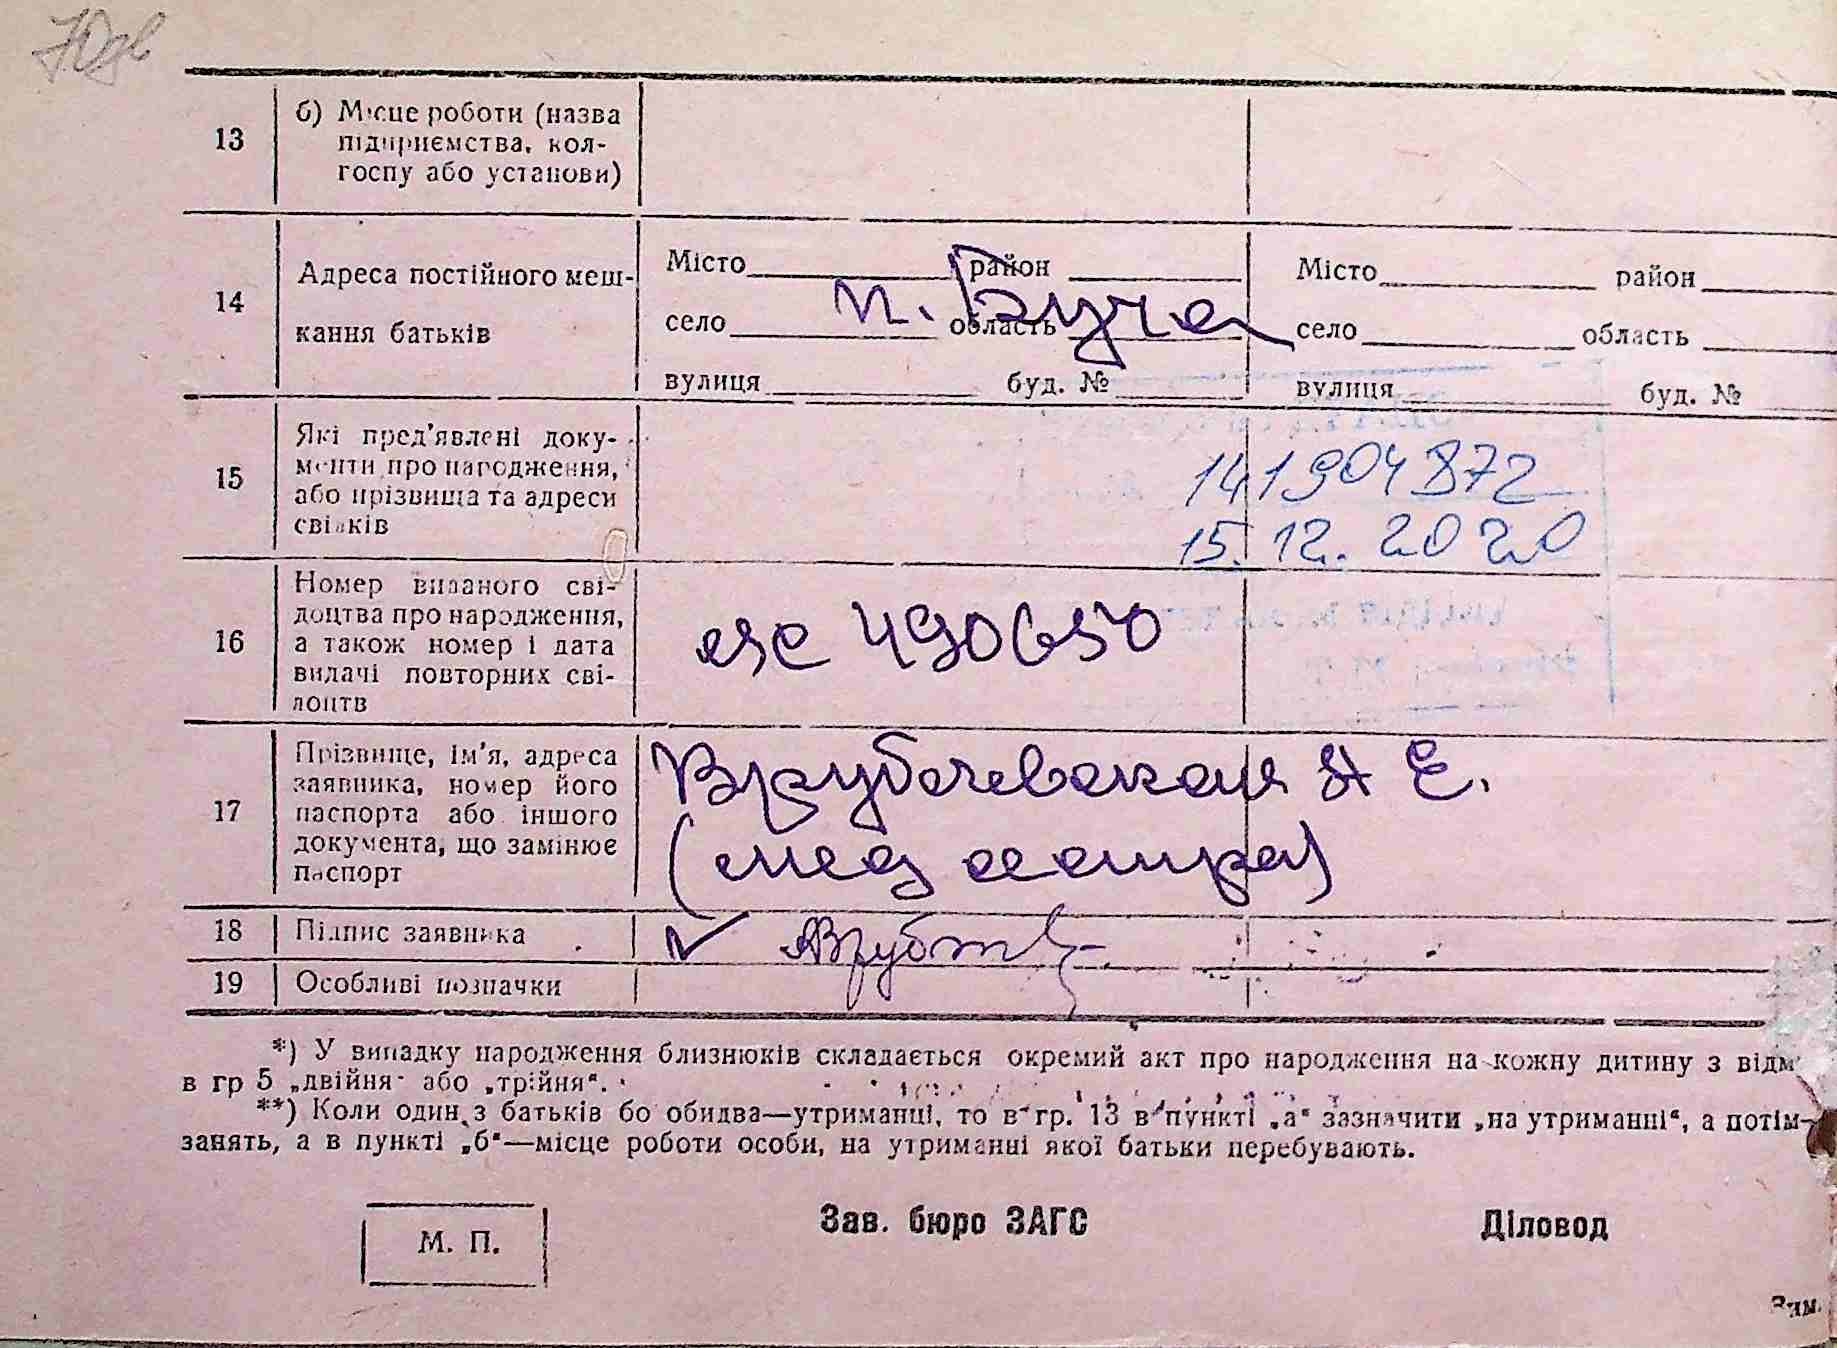 13
б) Місце роботи (назва
підприємства, кол-
госпу або установи)
14
Адреса постійного меш-
кання батьків
Місто район
село область
вулиця буд. №
п. Буча
Місто район
село область
вулиця буд. №
15
Які пред'явлені доку-
менти про народження,
або прізвища та адреси
свідків
141904872
15.12.2020
16
Номер виданого сві-
доцтва про народження,
а також номер і дата
видачі повторних сві-
доцтв
490650
17
Прізвище, ім'я, адреса
заявника, номер його
паспорта або іншого
документа, що замінює
паспорт
Е.
(мед сестра)
18
Підпис заявника
19
Особливі позначки
*) У випадку народження близнюків складається окремий акт про народження на кожну дитину з відм
в гр 5 „двійня“ або „трійня“.
**) Коли один з батьків бо обидва—утриманці, то в гр. 13 в пункті „а“ зазначити „на утриманні“, а потім—
занять, а в пункті „б“—місце роботи особи, на утриманні якої батьки перебувають.
М. П.
Зав. бюро ЗАГС
Діловод
Зам.